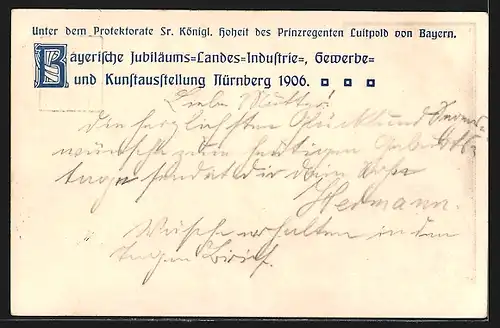 Unter dem Protektorate Sr. Königl. Hoheit des Prinzregenten Luitpold von Bayern.
Bayerische Jubiläums=Landes=Industrie=, Gewerbe=
und Kunstausstellung Nürnberg 1906.
Liebe Mutter!
Die herzlichsten Glück und Segens-
wünsche zum heutigen Geburts-
tage sendet dir dein Sohn
Hermann.
Wäsche erhalten in den
Tagen Brief.